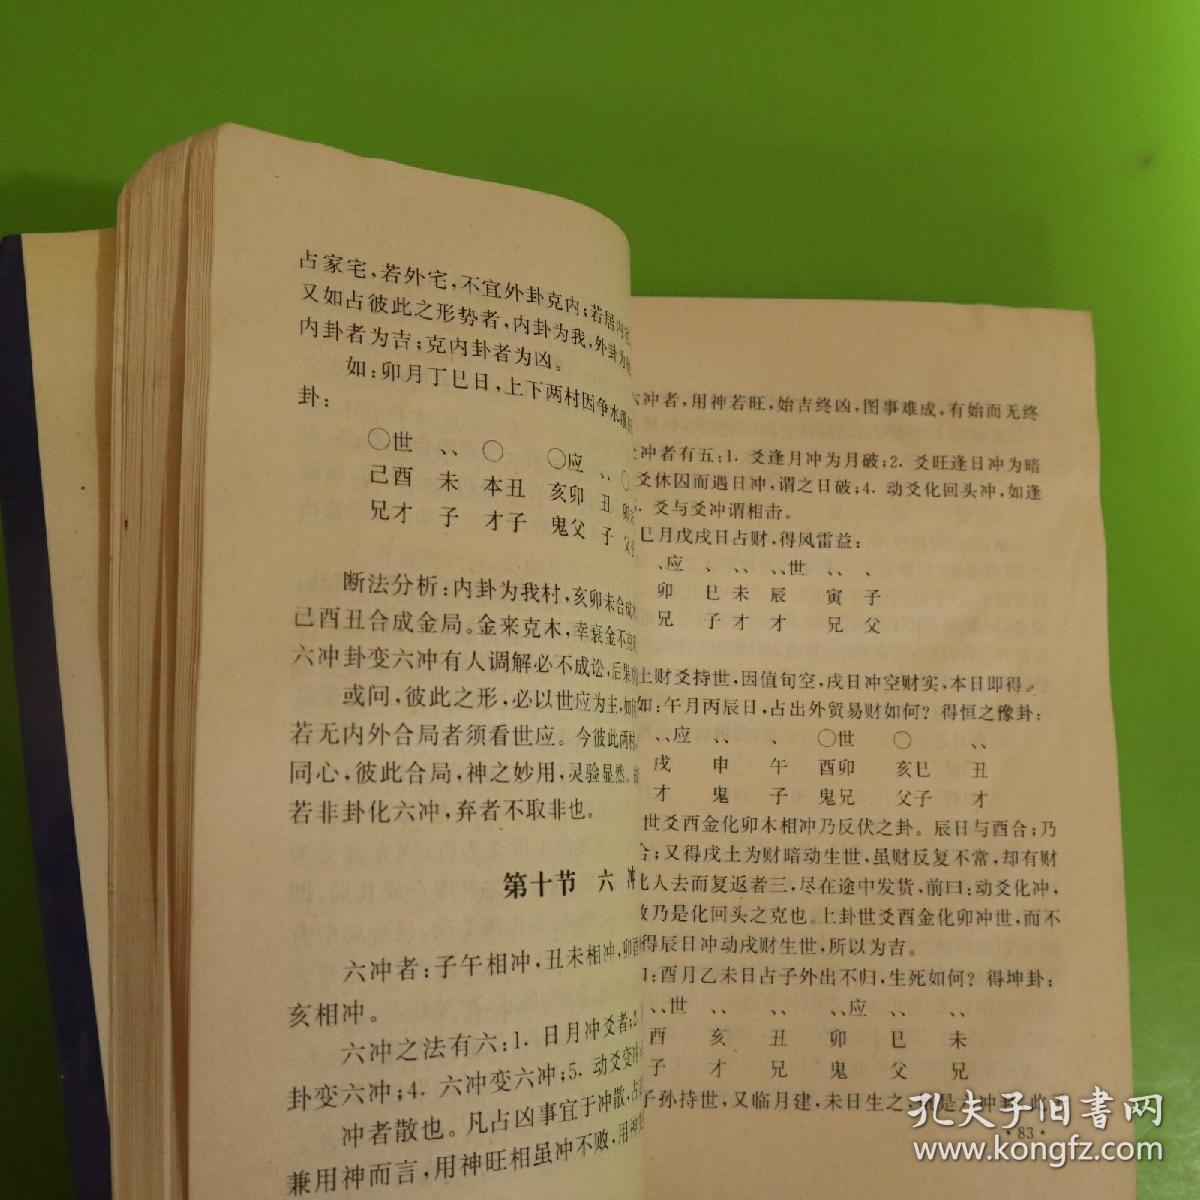 占家宅，若外宅，不宜外卦克内；若居内宅
又如占彼此之形势者，内卦为我，外卦为
内卦者为吉；克内卦者为凶。
如：卯月丁巳日，上下两村因争水
卦：
〇世 、、 〇 〇应 、、 〇
己酉 未 本丑 亥卯 丑
兄才 子 才子 鬼父 子
断法分析：内卦为我村，亥卯未合成
己酉丑合成金局。金来克木，幸衰金不
六冲卦变六冲有人调解必不成讼，后果
或问，彼此之形，必以世应为主，如
若无内外合局者须看世应。今彼此两村
同心，彼此合局，神之妙用，灵验显然。
若非卦化六冲，弃者不取非也。
第十节 六 冲
六冲者：子午相冲，丑未相冲，卯酉
亥相冲。
六冲之法有六：1. 日月冲爻者；2.
卦变六冲；4. 六冲变六冲；5. 动爻变
冲者散也。凡占凶事宜于冲散，占
兼用神而言，用神旺相虽冲不败，用神
六冲者，用神若旺，始吉终凶，图事难成，有始而无终
冲者有五：1. 爻逢月冲为月破；2. 爻旺逢日冲为暗
爻休囚而遇日冲，谓之日破；4. 动爻化回头冲，如逢
爻与爻冲谓相击。
巳月戊戌日占财，得风雷益：
、应 、 、、 、、世 、、 、
卯 巳 未 辰 寅 子
兄 子 才 才 兄 父
上财爻持世，因值旬空，戌日冲空财实，本日即得。
如：午月丙辰日，占出外贸易财如何？得恒之豫卦：
、、应 、、 、 〇世 〇 、、
戌 申 午 酉卯 亥巳 丑
才 鬼 子 鬼兄 父子 才
世爻酉金化卯木相冲乃反伏之卦。辰日与酉合；乃
合；又得戌土为财暗动生世，虽财反复不常，却有财
化人去而复返者三，尽在途中发货，前曰：动爻化冲，
故乃是化回头之克也。上卦世爻酉金化卯冲世，而不
得辰日冲动戌财生世，所以为吉。
：酉月乙未日占子外出不归，生死如何？得坤卦：
、、世 、、 、、 、、应 、、 、、
酉 亥 丑 卯 巳 未
子 才 兄 鬼 父 兄
子孙持世，又临月建，未日生之，
·83·
孔夫子旧书网
www.kongfz.com